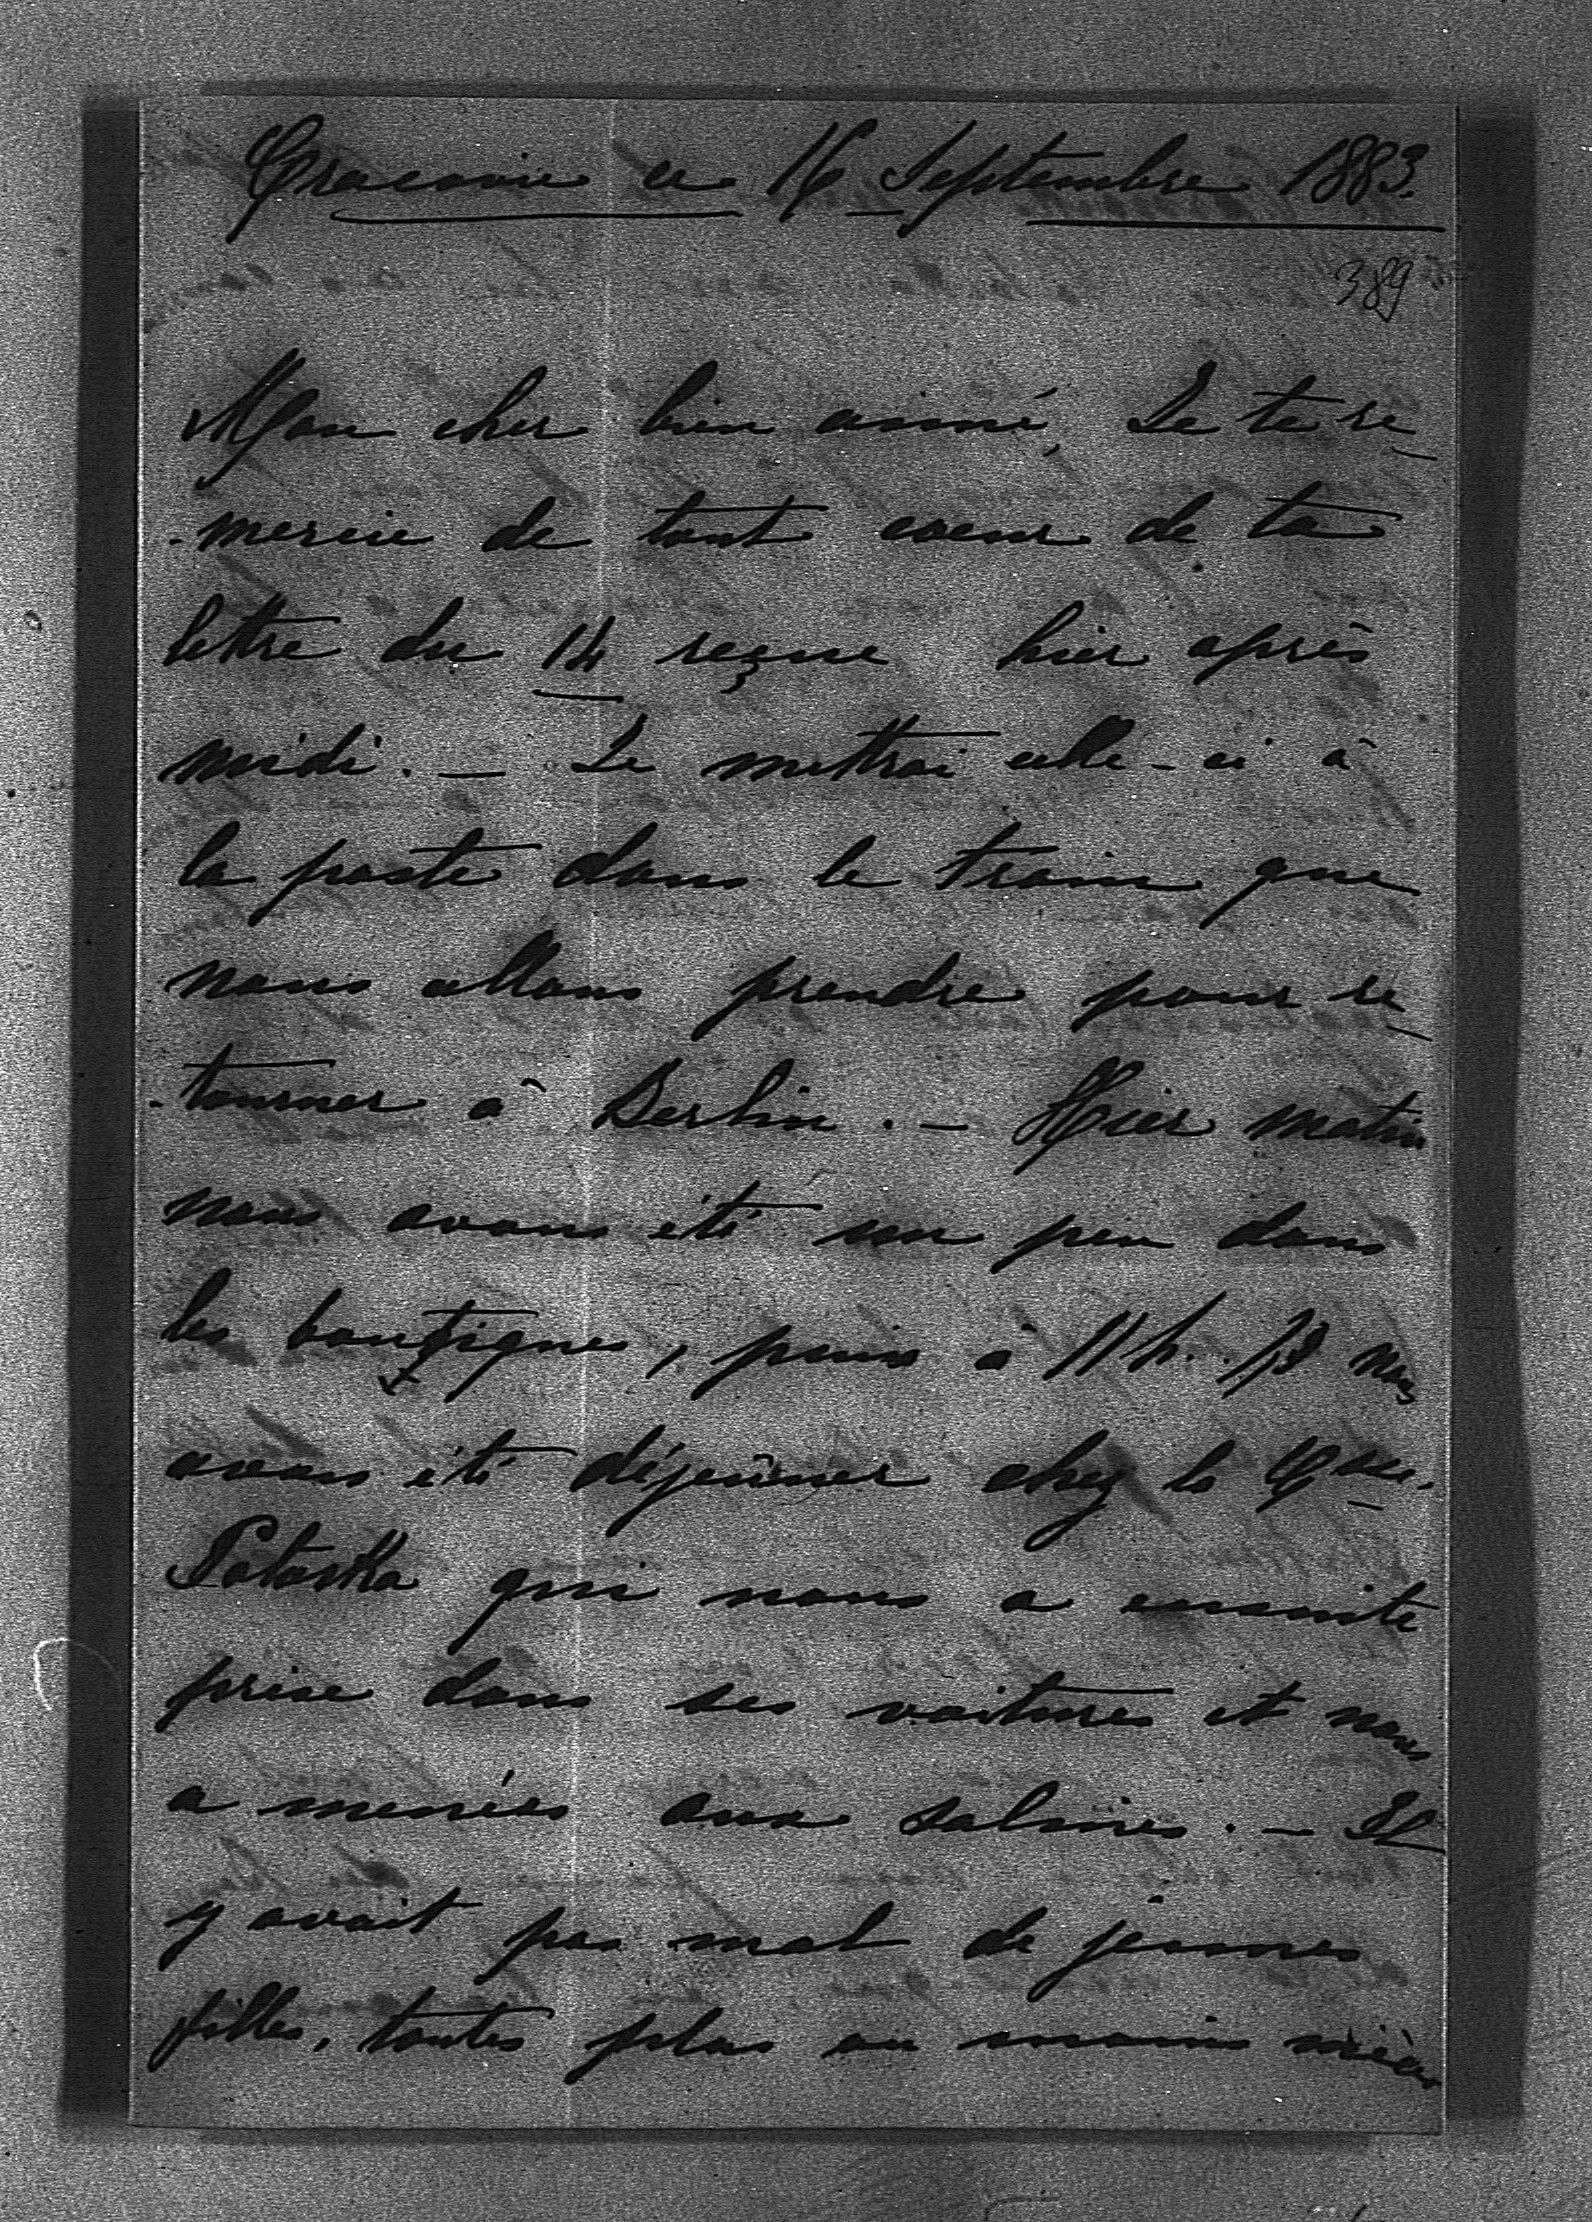 Cracovie ce 16 Septembre 1883.
389
Mon cher bien aimé, Je te re
-mercie de tout coeur de ta
lettre du 14 reçue hier après
midi. – Je mettrai celle-ci à
la poste dans le train que
nous allons prendre pour re
-tourner à Berlin. – Hier matin
nous avons été un peu dans
les boutiques, puis à 11 h. 1/2 nous
avons été déjeûner chez la Csse.
Potocka qui nous a ensuite
prise dans ses voitures et nous
a menées aux salines. – Il
y avait pas mal de jeunes
filles, toutes plus ou moins nièces